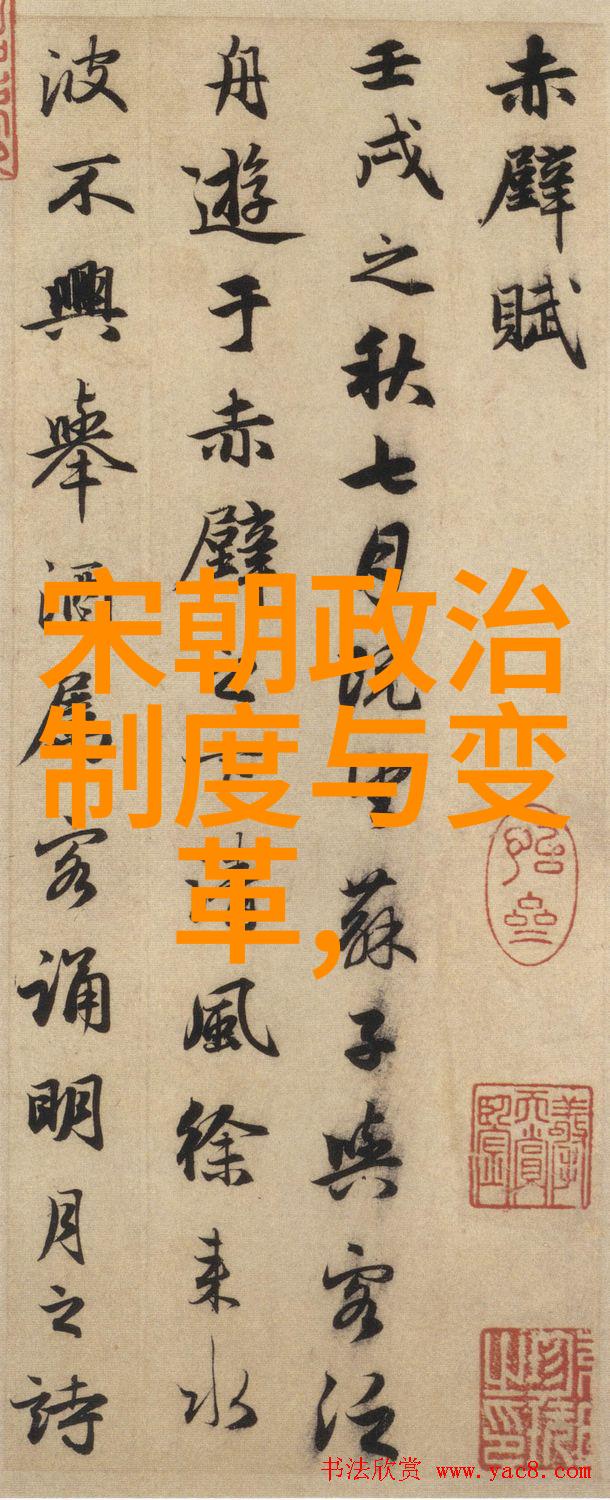 赤壁賦
壬戌之秋七月既望蘇子與客泛
舟遊于赤壁之下清風徐来水
波不興舉酒属客誦明月之詩
宋朝政治
制度与变
革,
书法欣赏 www.yac8.com